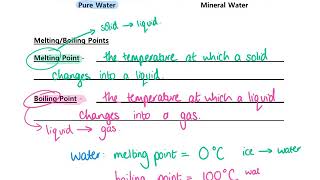 Pure Water Mineral Water
solid → liquid.
Melting/Boiling Points
Melting Point - the temperature at which a solid
changes into a liquid.
Boiling Point - the temperature at which a liquid
changes into a gas.
liquid → gas.
water: melting point = 0°C ice → water
boiling point = 100°C wat